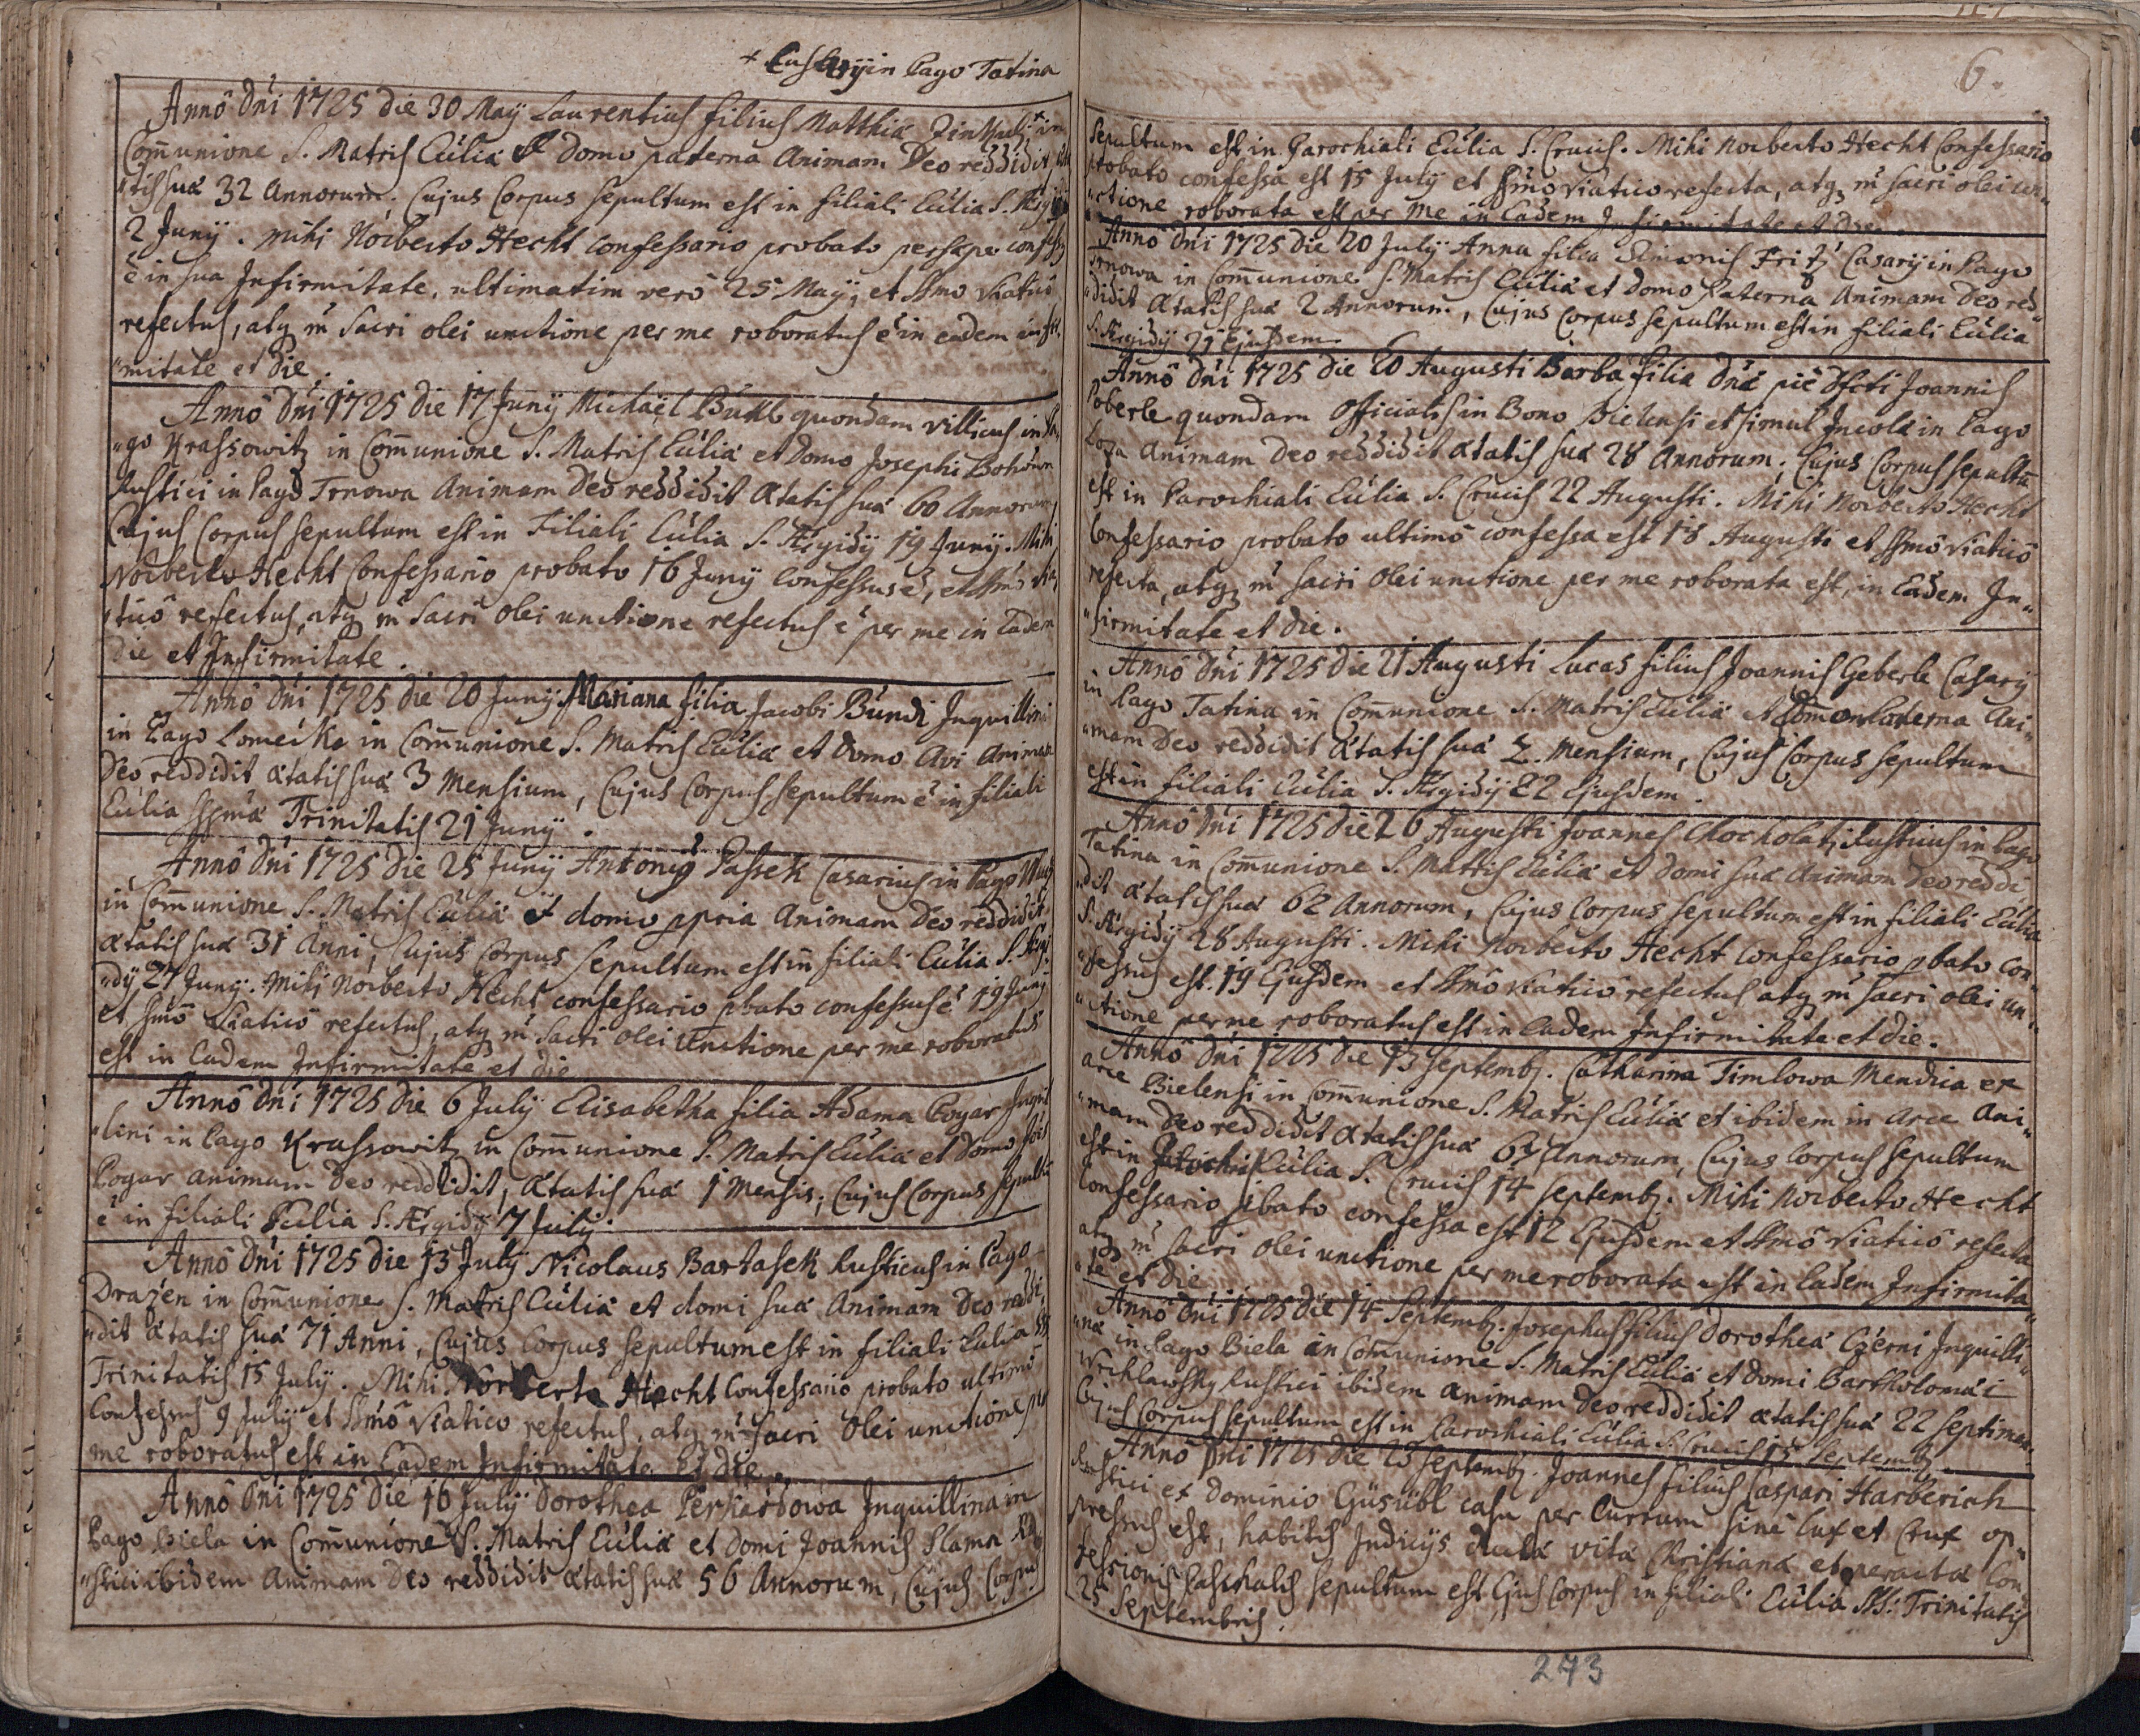 + Custodij in Pago Tatina
Annô Dni 1725 die 30 Maij Laurentius filius Matthiæ + in
Communione S. Matris Ecclia et domo paterna Animam Deo reddidit, æta
"tis suæ 32 Annorum. Cujus Corpus sepultum est in filiali Ecclia S. Ægidij
2 Junij. Mihi Norberto Hecht Confessario probato persæpe confessus
ê in sua Infirmitate, ultimatim verò 25 Maij, et SSmo Viaticô
refectus, atq m sacri olei unctione per me roboratus ê in eadem infir
"mitate et die.
Annô Dni 1725 die 17 Junij Michaël Bukl quondam Villicus in Pa
"go Krassowitz in Communione S. Matris Ecclia et domo Josephi
Rustici in Pago Trnowa Animam Deo reddidit Ætatis suæ 60 Annorum,
Cujus Corpus sepultum est in Filiali Ecclia S. Ægidij 19 Junij. Mihi
Norberto Hecht Confessario probato 16 Junij Confessus ê, et SSmô Via
"ticô refectus, atq m sacri olei unctione refectus ê per me in eadem
die et Infirmitate.
Annô Dni 1725 die 20 Junij Mariana filia Jacobi Bundi Inquillini
in Pago Lomecko in Communione S. Matris Ecclia et domo Avi Animam
Deo reddidit ætatis suæ 3 Mensium, Cujus Corpus sepultum ê in filiali
Ecclia SSmæ Trinitatis 21 Junij.
Annô Dni 1725 die 25 Junij Antonig Passek Casarius in Pago
in Communione S. Matris Ecclia et domo ppria Animam Deo reddidit,
ætatis suæ 31 Anni, Cujus Corpus sepultum est in filiali Ecclia S. Ægi
"dij 27 Junij. Mihi Norberto Hecht confessario pbato confessus ê 19 Junij
et SSmô Viaticô refectus, atq m sacri olei Unctione per me roboratus
est in Eadem Infirmitate et die
Annô Dni 1725 die 6 July Elisabetha filia Adama Pogar Inquil
"lini in Pago Krassowitz in Communione S. Matris Ecclia et domo
Pogar Animam Deo reddidit, ætatis suæ 1 Mensis, Cujus Corpus sepultũ
ê in filiali Ecclia S. Ægidij 7 July.
Annô Dni 1725 die 13 July Nicolaus Bartasek Rusticus in Pago
Drazén in Communione S. Matris Ecclia et domi suæ Animam Deo reddi
"dit ætatis suæ 71 Anni, Cujus Corpus sepultum est in filiali Ecclia SS
Trinitatis 15 July. Mihi Norberto Hecht Confessario probato ultimô
Confessus 9 July et SSmô Viatico refectus, atq m sacri Olei unctione per
me roboratus est in Eadem Infirmitate et die.
Annô Dni 1725 die 16 July Dorothea Inquillina in
Pago Biela in Communione S. Matris Ecclia et domi Joannis Slama Ru
"stici ibidem Animam Deo reddidit ætatis suæ 56 Annorum, Cujus Corpus
6.
Sepultum est in Parochiali Ecclia S. Crucis. Mihi Norberto Hecht Confessario
probato confessa est 15 July et SSmô Viatico refecta, atq m sacri olei un
"ctione roborata est per me in Eadem Infirmitate et die.
Annô Dni 1725 die 20 July Anna filia Simonis Fritz Casarij in Pago
Trnowa in Communione S. Matris Ecclia et domo Paterna Animam Deo red
"didit ætatis suæ 2 Annorum, Cujus Corpus sepultum est in filiali Ecclia
S. Ægidij 21 Ejusdem
Annô Dni 1725 die 20 Augusti Barba filia Dnæ piè Dfcti Joannis
Poberle quondam Officialis in Bono Bielensi et simul Incolæ in Pago
Loza Animam Deo reddidit ætatis suæ 28 Annorum, Cujus Corpus sepultũ
est in Parochiali Ecclia S. Crucis 22 Augusti. Mihi Norberto Hecht
Confessario probato ultimô confessa est 18 Augusti et SSmô Viaticô
refecta, atq m sacri olei unctione per me roborata est, in Eadem In"
"firmitate et die.
Annô Dni 1725 die 21 Augusti Lucas filius Joannis Geberle Casarij
in Pago Tatina in Communione S. Matris Ecclia et domo Paterna Ani"
"mam Deo reddidit ætatis suæ 2. Mensium, Cujus Corpus sepultum
est in filiali Ecclia S. Ægidij 22 Ejusdem.
Annô Dni 1725 die 26 Augusti Joannes Chocholatj Rusticus in Pago
Tatina in Communione S. Matris Ecclia et domi suæ Animam Deo reddi
"dit ætatis suæ 62 Annorum, Cujus Corpus sepultum est in filiali Ecclia
S. Ægidij 28 Augusti. Mihi Norberto Hecht Confessario pbato con"
"fessus est 19 Ejusdem et SSmô Viaticô refectus atq m sacri olei un"
"ctione per me roboratus est in Eadem Infirmitate et die.
Annô Dni 1725 die 13 Septemb. Catharina Timlowa Mendica ex
arce Bielensi in Communione S. Matris Ecclia et ibidem in Arce Ani"
"mam Deo reddidit ætatis suæ 67 Annorum, Cujus Corpus sepultum
est in Ecclia S. Crucis 14 Septemb. Mihi Norberto Hecht
Confessario pbato confessa est 12 Ejusdem et SSmô Viaticô refecta
atq m sacri olei unctione per me roborata est in Eadem Infirmita"
"te et die
Annô Dni 1725 die 14 Septemb. Josephus filius Dorotheæ Czerni Inquilli"
"næ in Pago Biela in Communione S. Matris Ecclia et domi Bartholomæi
Rustici ibidem Animam Deo reddidit ætatis suæ 22 Septiman
Cujus Corpus sepultum est in Parochiali Ecclia S. Crucis 15 Septemb.
Annô Dni 1725 die 23 Septemb. Joannes filius Caspari Harberich
Rustici ex Dominio Güsübl casu per Currum sine lux et crux op"
pressus est, habitis Judicijs ductæ vitæ Christianæ et peractæ Con"
fessionis Paschalis sepultum est Ejus Corpus in filiali Ecclia SS: Trinitatis
25 Septembris.
273